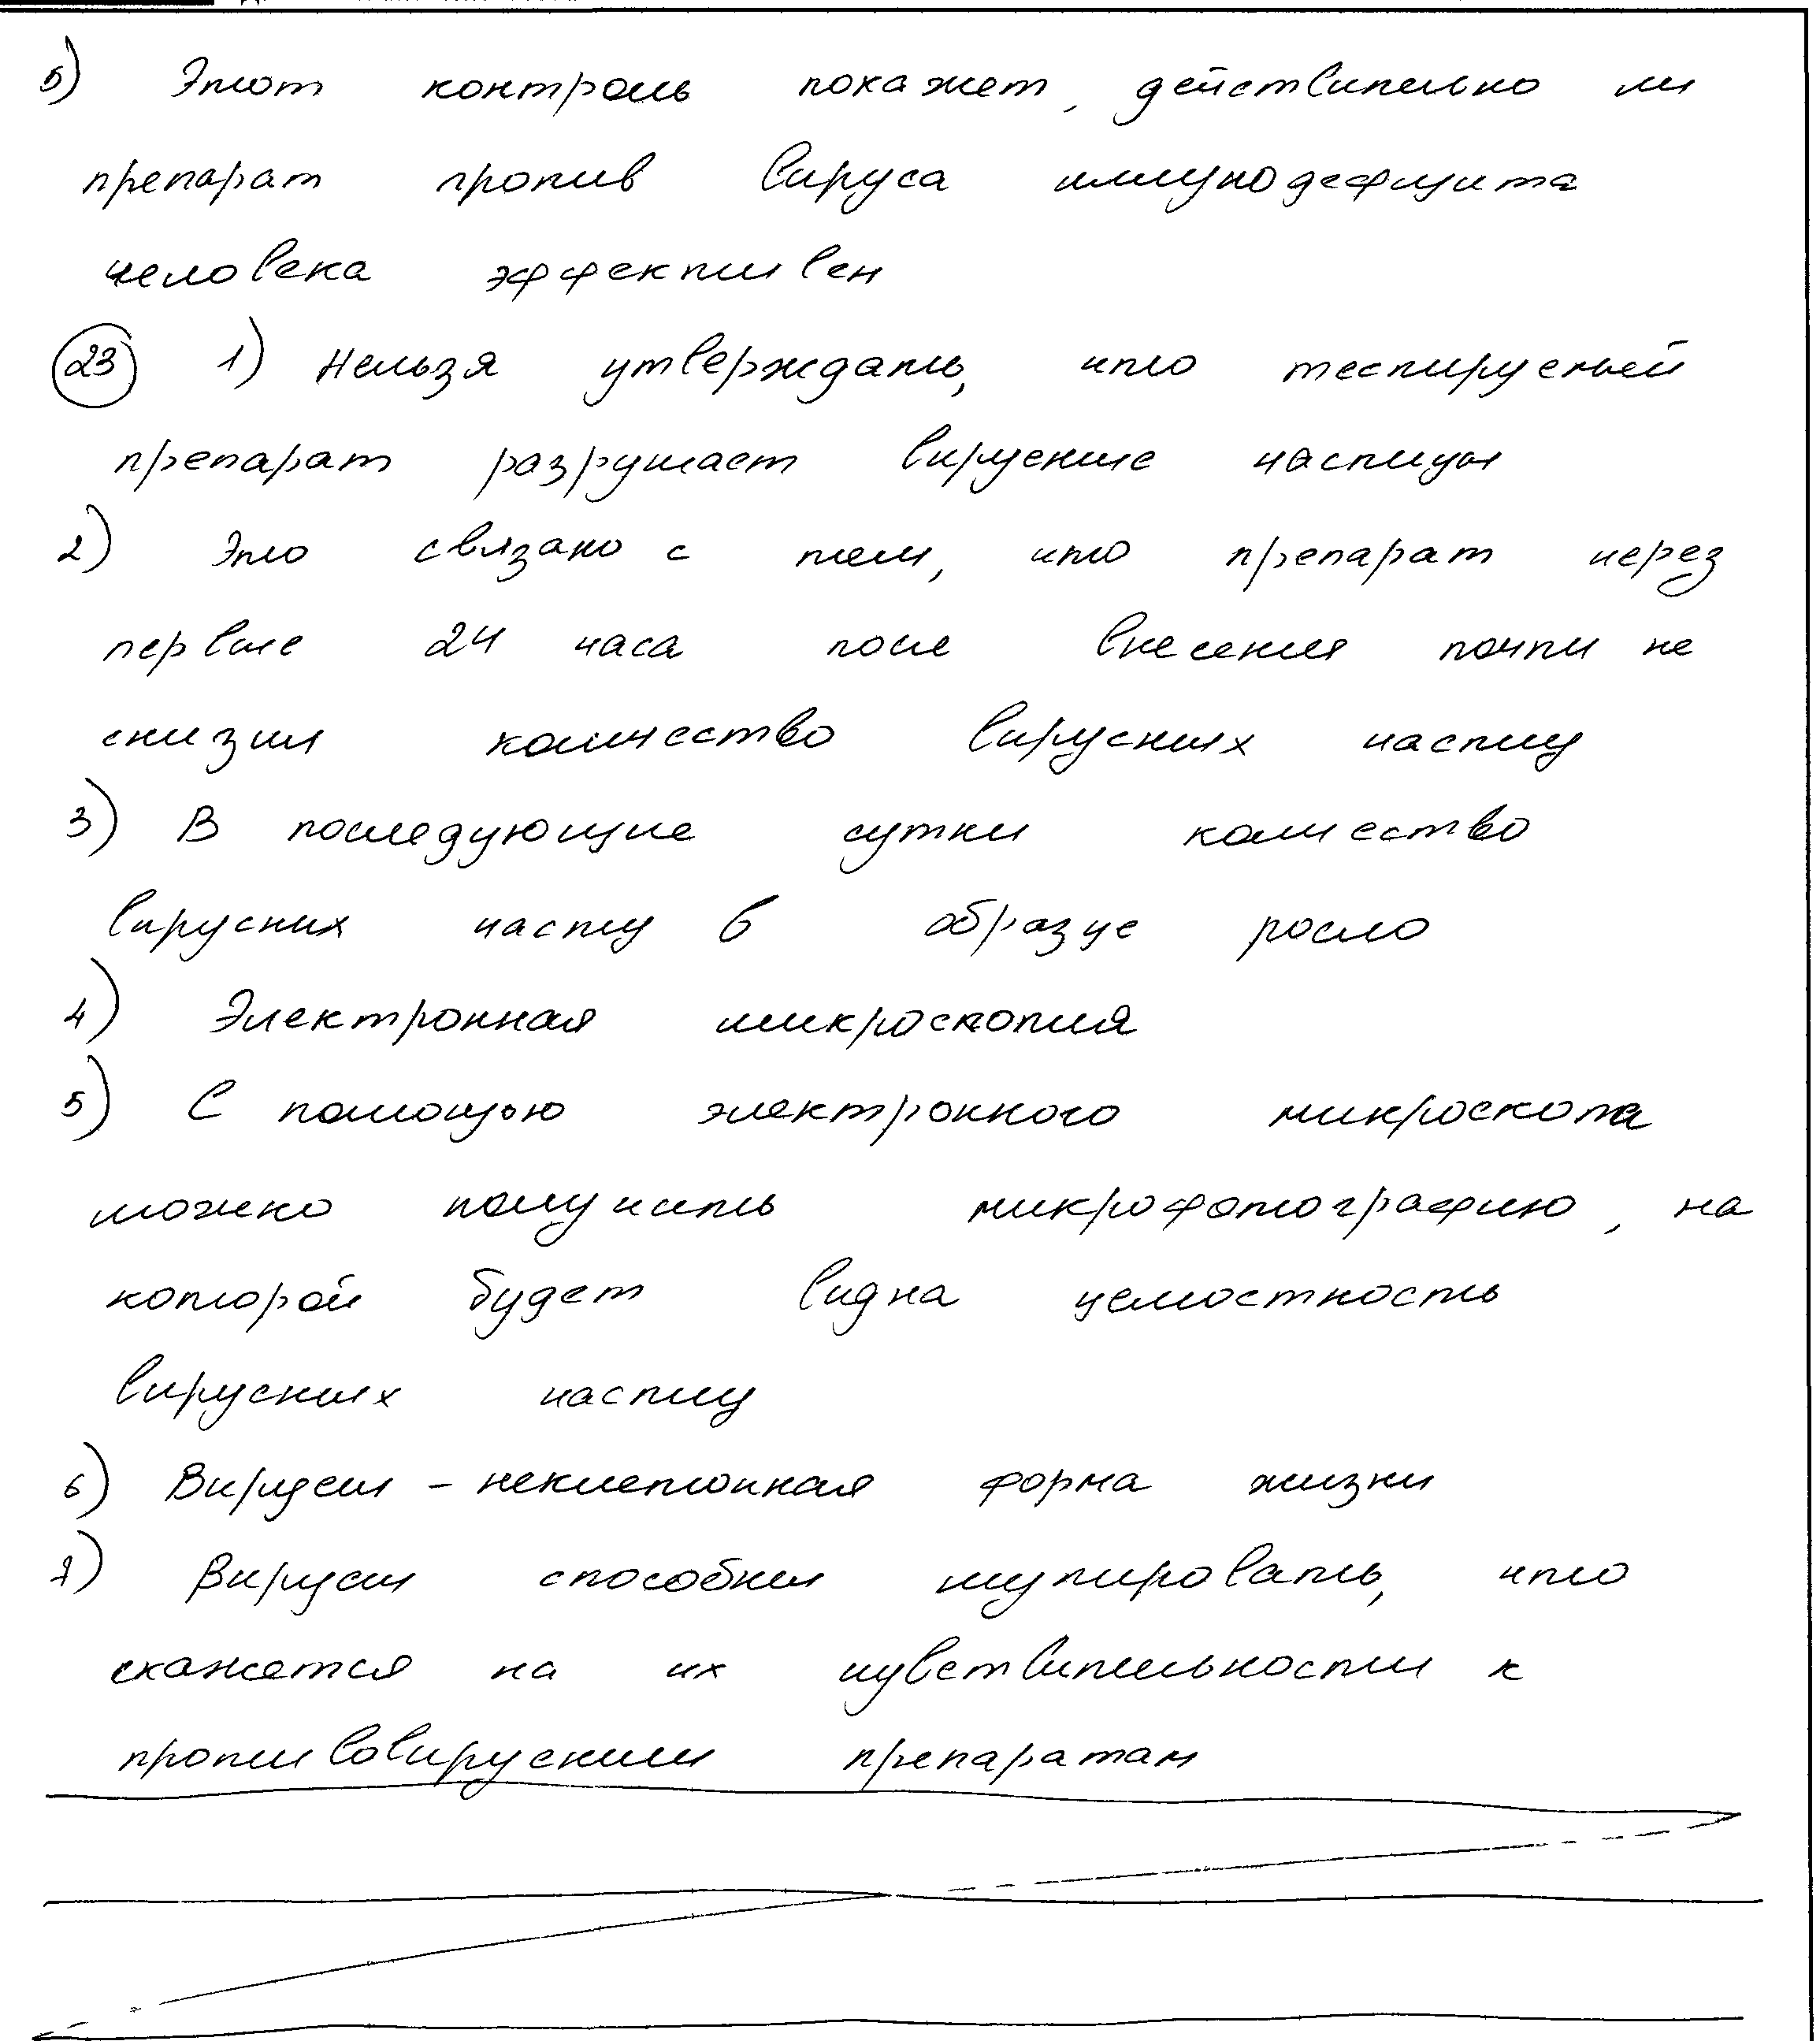 5) Этот контроль покажет, действительно ли
препарат против вируса иммунодефицита
человека эффективен
23 1) Нельзя утверждать, что тестируемый
препарат разрушает вирусные частицы
2) Это связано с тем, что препарат через
первые 24 часа после внесения почти не
снизил количество вирусных частиц
3) В последующие сутки количество
вирусных частиц в образце росло
4) Электронная микроскопия
5) С помощью электронного микроскопа
можно получить микрофотографию, на
которой будет видна целостность
вирусных частиц
6) Вирусы - неклеточная форма жизни
7) Вирусы способны мутировать, что
скажется на их чувствительности к
противовирусным препаратам